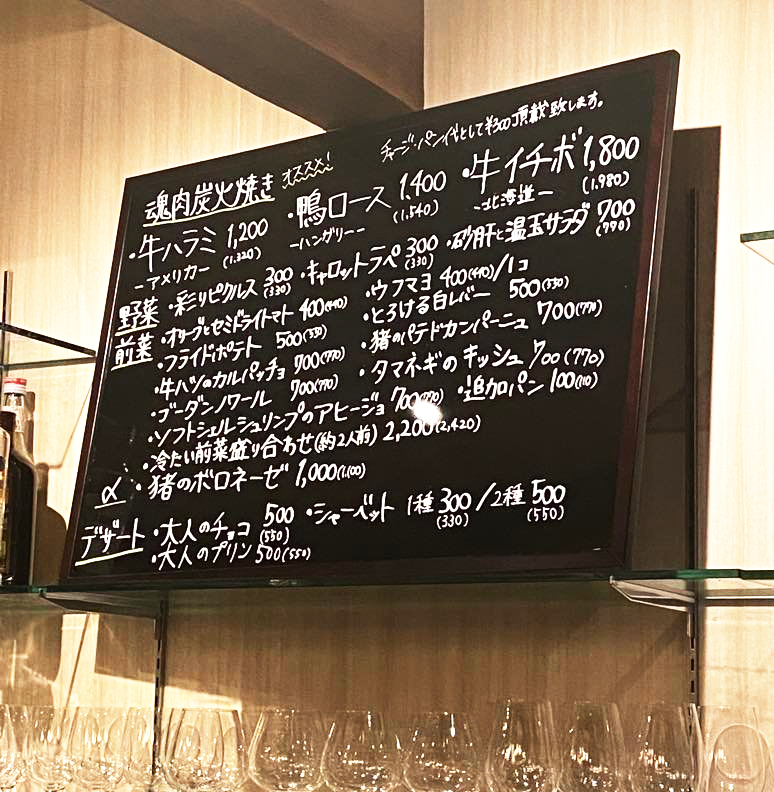 チャージ・パン代として¥300頂戴致します。
魂肉炭火焼き オススメ！
・牛ハラミ 1,200 (1,320)
-アメリカ-
・鴨ロース 1,400 (1,540)
-ハンガリー-
・牛イチボ 1,800 (1,980)
-北海道-
野菜 ・彩りピクルス 300 (330) ・キャロットラペ 300 (330) ・砂肝と温玉サラダ 700 (770)
前菜 ・オリーブとセミドライトマト 400(440) ・ウフマヨ 400(440)/1コ
・フライドポテト 500(550) ・とろける白レバー 500(550)
・牛ハツのカルパッチョ 700(770) ・猪のパテドカンパーニュ 700(770)
・ゴーダンノワール 700(770) ・タマネギのキッシュ 700(770)
・ソフトシェルシュリンプのアヒージョ 700(770) ・追加パン 100(110)
・冷たい前菜盛り合わせ(約2人前) 2,200(2,420)
α ・猪のボロネーゼ 1,000(1,100)
デザート ・大人のチョコ 500 (550) ・シャーベット 1種 300 (330) /2種 500 (550)
・大人のプリン 500(550)